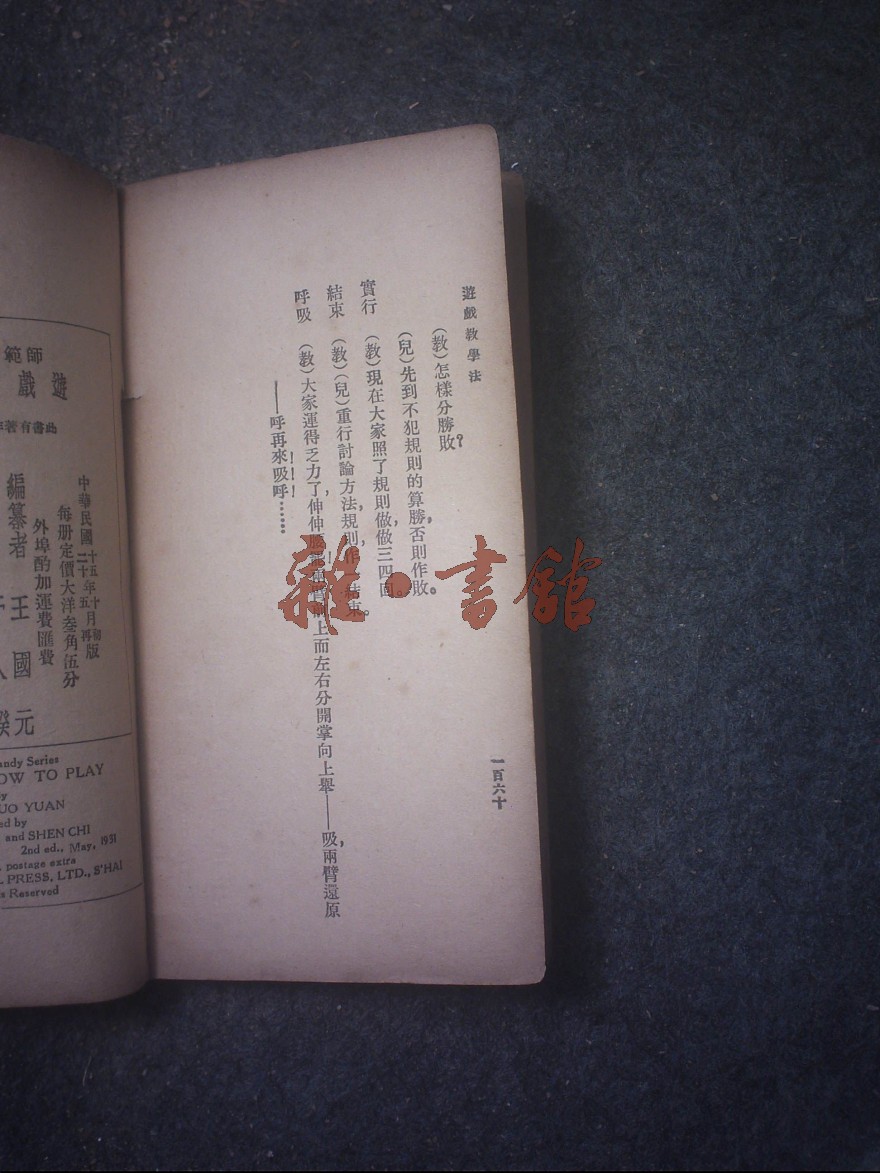 遊戲教學法
(教)怎樣分勝敗?
(兒)先到不犯規則的算勝,否則作敗。
實行 (教)現在大家照了規則做,做三四回。
結束 (教)(兒)重行討論方法,規則,作 結束。
呼吸 (教)大家運得乏力了,伸伸 上而左右分開掌向上舉——吸,兩臂還原
——呼再來吸呼……
一百六十
範師
戲 遊
著有書曲
中華民國 十五年十月初版
二十年五月再版
每册定價大洋叁角伍分
外埠酌加運費匯費
編纂者 王國元
andy Series
OW TO PLAY
by
UO YUAN
ed by
and SHEN CHI
2nd ed., May, 1931
postage extra
L PRESS, LTD., S'HAI
ts Reserved
雜·書館